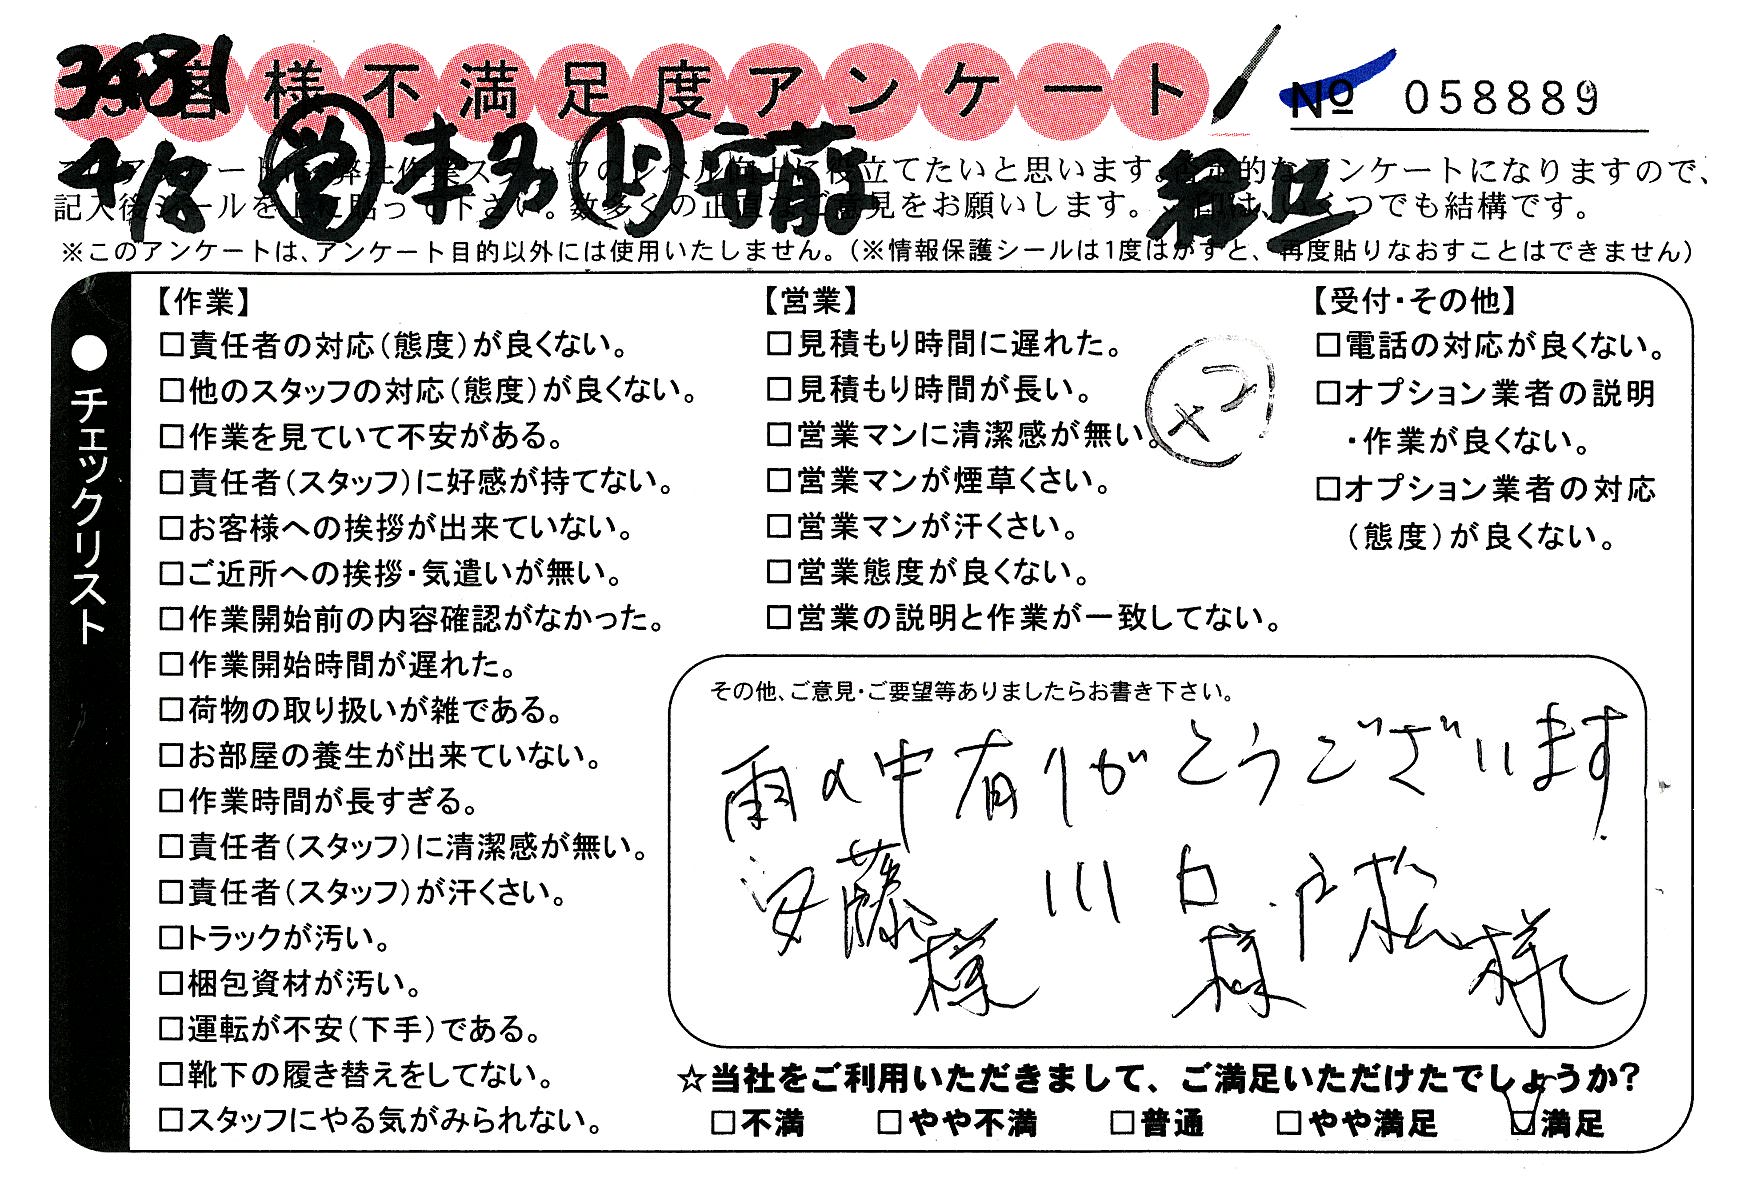 3481
お客様不満足度アンケート
№ 058889
営 本多 リ 安藤 緑区
このアンケートは、弊社作業スタッフのレベル向上に役立てたいと思います。否定的なアンケートになりますので、
記入後シールを上に貼って下さい。数多くの正直なご意見をお願いします。✓印は、いくつでも結構です。
※このアンケートは、アンケート目的以外には使用いたしません。(※情報保護シールは1度はがすと、再度貼りなおすことはできません)
●チェックリスト
【作業】
□責任者の対応(態度)が良くない。
□他のスタッフの対応(態度)が良くない。
□作業を見ていて不安がある。
□責任者(スタッフ)に好感が持てない。
□お客様への挨拶が出来ていない。
□ご近所への挨拶・気遣いが無い。
□作業開始前の内容確認がなかった。
□作業開始時間が遅れた。
□荷物の取り扱いが雑である。
□お部屋の養生が出来ていない。
□作業時間が長すぎる。
□責任者(スタッフ)に清潔感が無い。
□責任者(スタッフ)が汗くさい。
□トラックが汚い。
□梱包資材が汚い。
□運転が不安(下手)である。
□靴下の履き替えをしてない。
□スタッフにやる気がみられない。
【営業】
□見積もり時間に遅れた。
□見積もり時間が長い。
□営業マンに清潔感が無い。
□営業マンが煙草くさい。
□営業マンが汗くさい。
□営業態度が良くない。
□営業の説明と作業が一致してない。
【受付・その他】
□電話の対応が良くない。
□オプション業者の説明
・作業が良くない。
□オプション業者の対応
(態度)が良くない。
その他、ご意見・ご要望等ありましたらお書き下さい。
雨の中有りがとうございます
安藤様 川口様 戸松様
☆当社をご利用いただきまして、ご満足いただけたでしょうか?
□不満 □やや不満 □普通 □やや満足 ☑満足